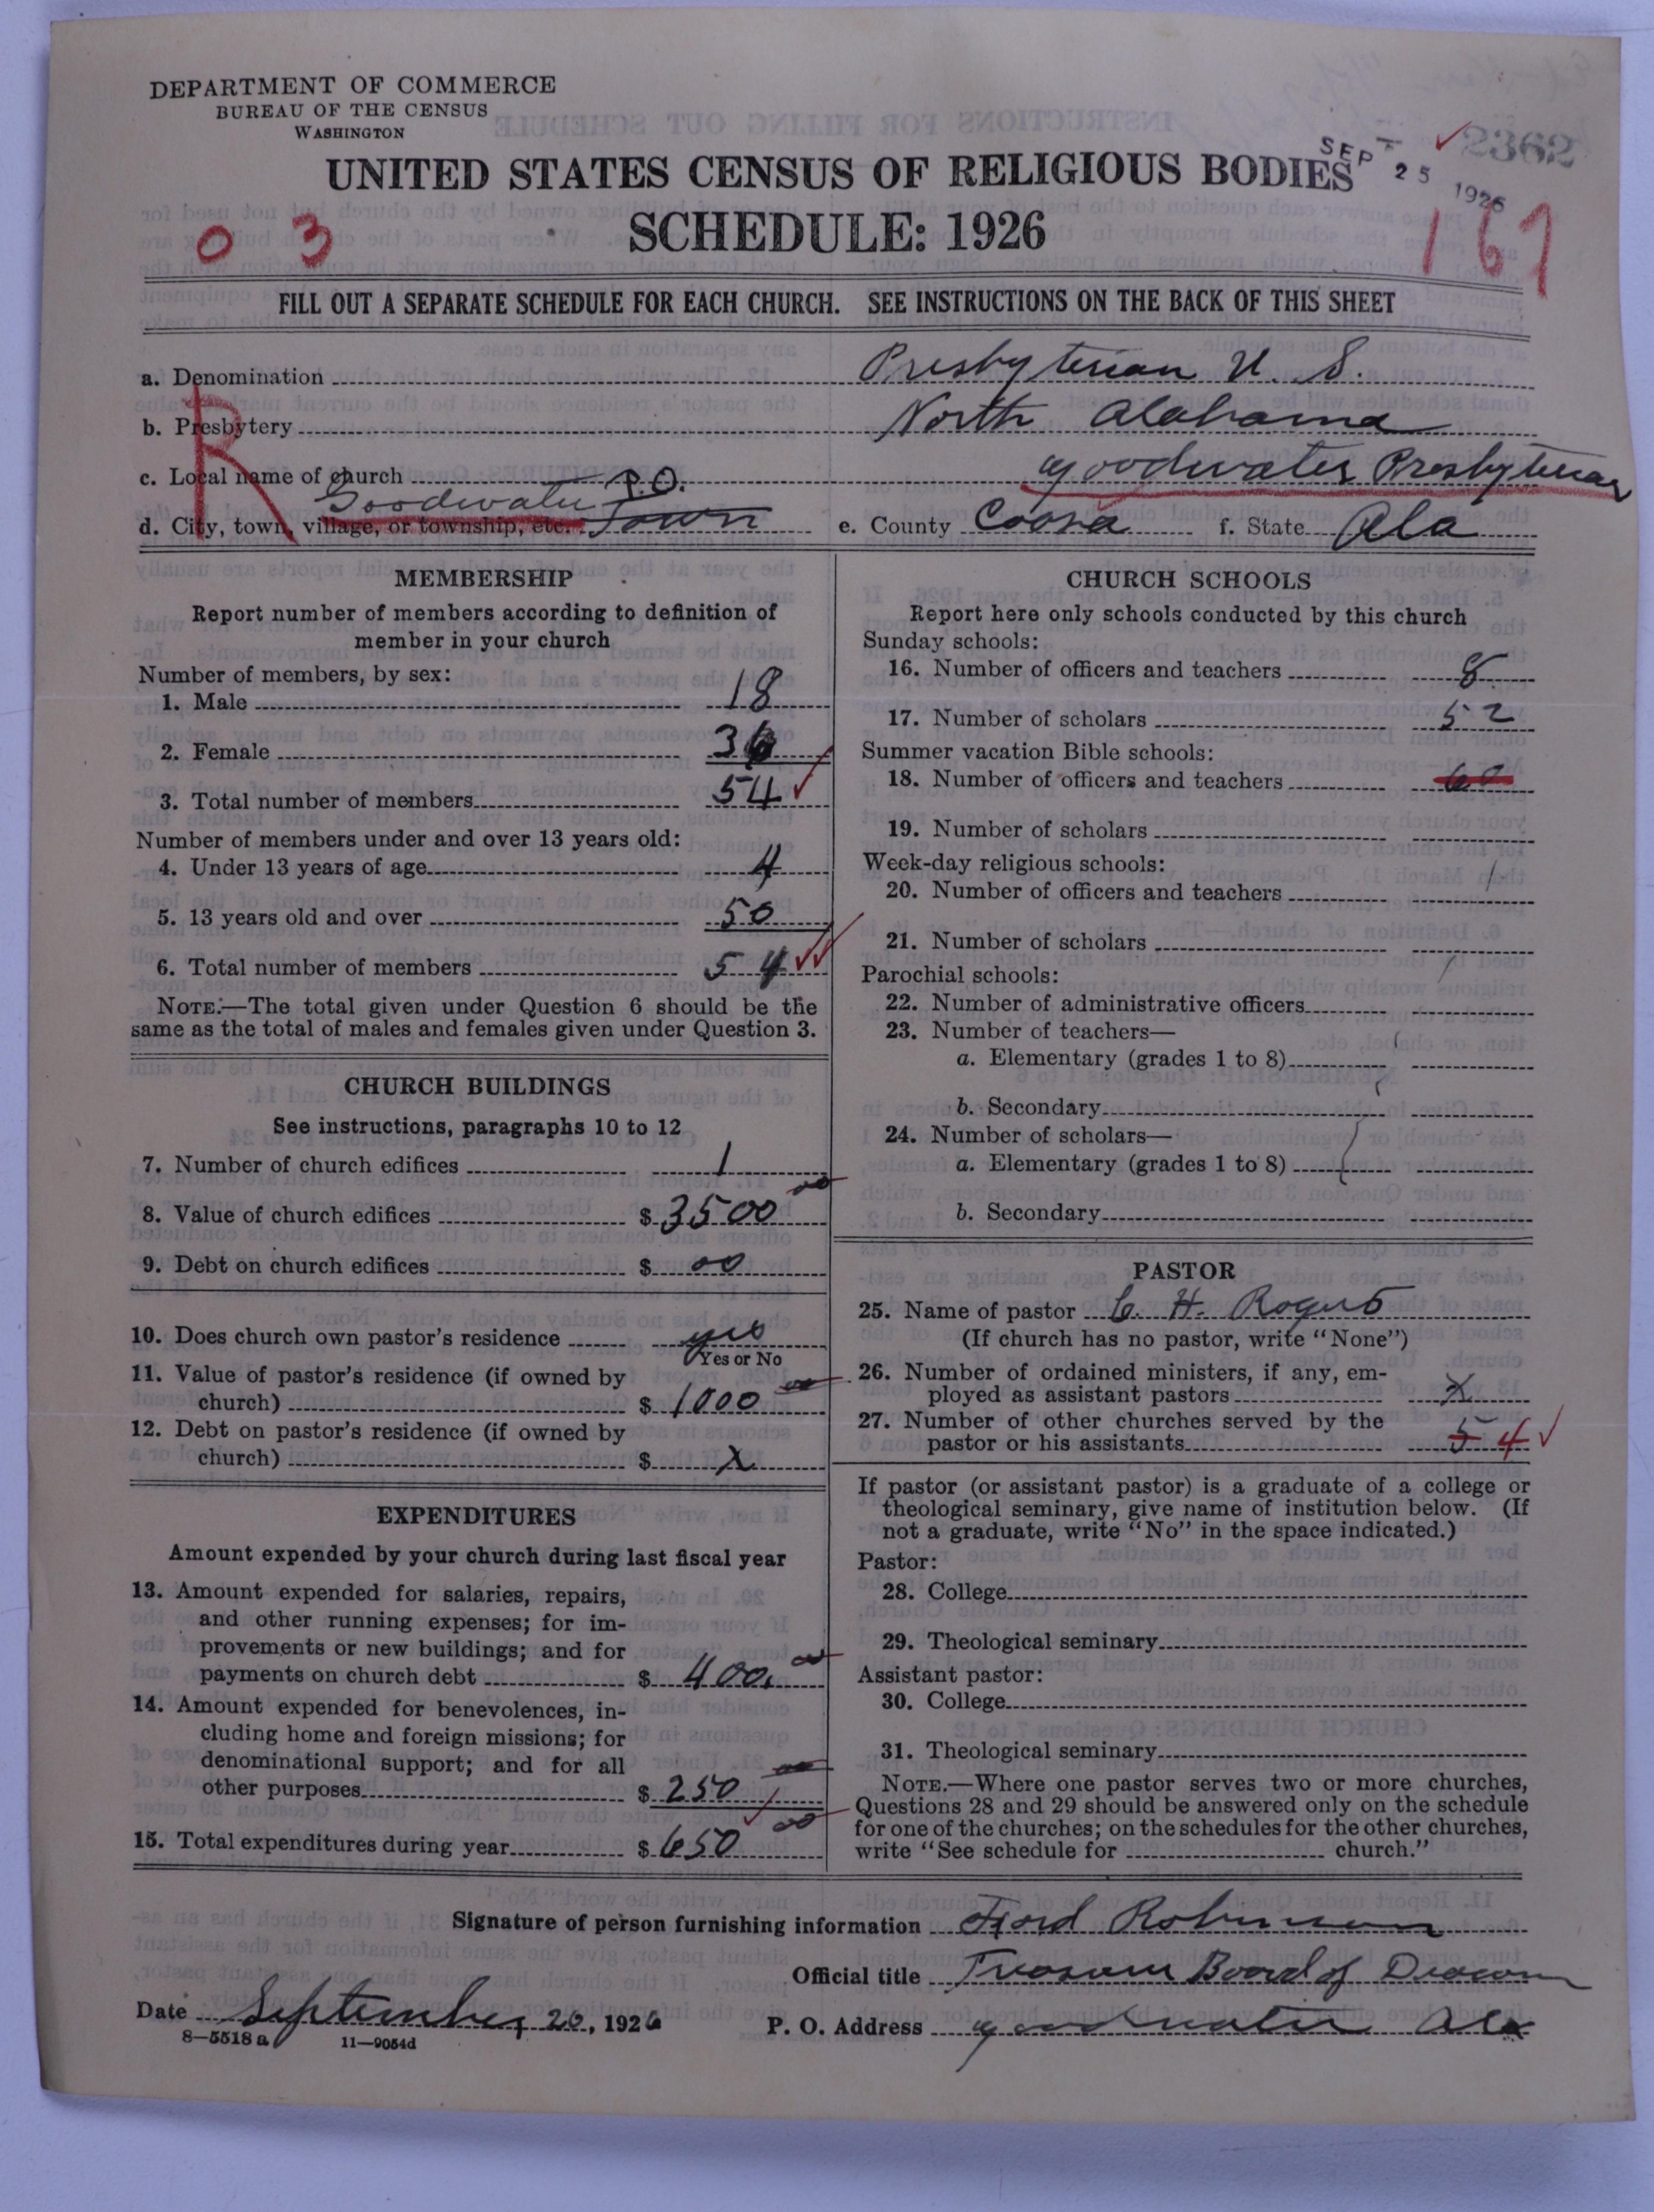 DEPARTMENT OF COMMERCE
BUREAU OF THE CENSUS
WASHINGTON
UNITED STATES CENSUS OF RELIGIOUS BODIES
SEP 25 1926
2362
SCHEDULE: 1926
0 3
167
FILL OUT A SEPARATE SCHEDULE FOR EACH CHURCH. SEE INSTRUCTIONS ON THE BACK OF THIS SHEET
a. Denomination Presbyterian U. S.
b. Presbytery North Alabama
R
c. Local name of church Goodwater Presbyterian
Goodwater P.O.
d. City, town, village, or township, etc. Town e. County Coosa f. State Ala
MEMBERSHIP
Report number of members according to definition of
member in your church
Number of members, by sex:
1. Male 18
2. Female 36
3. Total number of members 54
Number of members under and over 13 years old:
4. Under 13 years of age 4
5. 13 years old and over 50
6. Total number of members 54
NOTE.—The total given under Question 6 should be the
same as the total of males and females given under Question 3.
CHURCH BUILDINGS
See instructions, paragraphs 10 to 12
7. Number of church edifices 1
8. Value of church edifices $ 3500 00
9. Debt on church edifices $ 00
10. Does church own pastor's residence yes
Yes or No
11. Value of pastor's residence (if owned by
church) $ 1000
12. Debt on pastor's residence (if owned by
church) $ X
EXPENDITURES
Amount expended by your church during last fiscal year
13. Amount expended for salaries, repairs,
and other running expenses; for im-
provements or new buildings; and for
payments on church debt $ 400. 00
14. Amount expended for benevolences, in-
cluding home and foreign missions; for
denominational support; and for all
other purposes $ 250
15. Total expenditures during year $ 650 00
CHURCH SCHOOLS
Report here only schools conducted by this church
Sunday schools:
16. Number of officers and teachers 8
17. Number of scholars 52
Summer vacation Bible schools:
18. Number of officers and teachers 60
19. Number of scholars
Week-day religious schools:
20. Number of officers and teachers
21. Number of scholars
Parochial schools:
22. Number of administrative officers
23. Number of teachers—
a. Elementary (grades 1 to 8)
b. Secondary
24. Number of scholars—
a. Elementary (grades 1 to 8)
b. Secondary
PASTOR
25. Name of pastor C. H. Rogers
(If church has no pastor, write "None")
26. Number of ordained ministers, if any, em-
ployed as assistant pastors X
27. Number of other churches served by the
pastor or his assistants 5 4
If pastor (or assistant pastor) is a graduate of a college or
theological seminary, give name of institution below. (If
not a graduate, write "No" in the space indicated.)
Pastor:
28. College
29. Theological seminary
Assistant pastor:
30. College
31. Theological seminary
NOTE.—Where one pastor serves two or more churches,
Questions 28 and 29 should be answered only on the schedule
for one of the churches; on the schedules for the other churches,
write "See schedule for church."
Signature of person furnishing information Ford Robinson
Official title Treasurer Board of Deacons
Date September 20, 1926
P. O. Address Goodwater Ala
8—5518 a 11—9054d